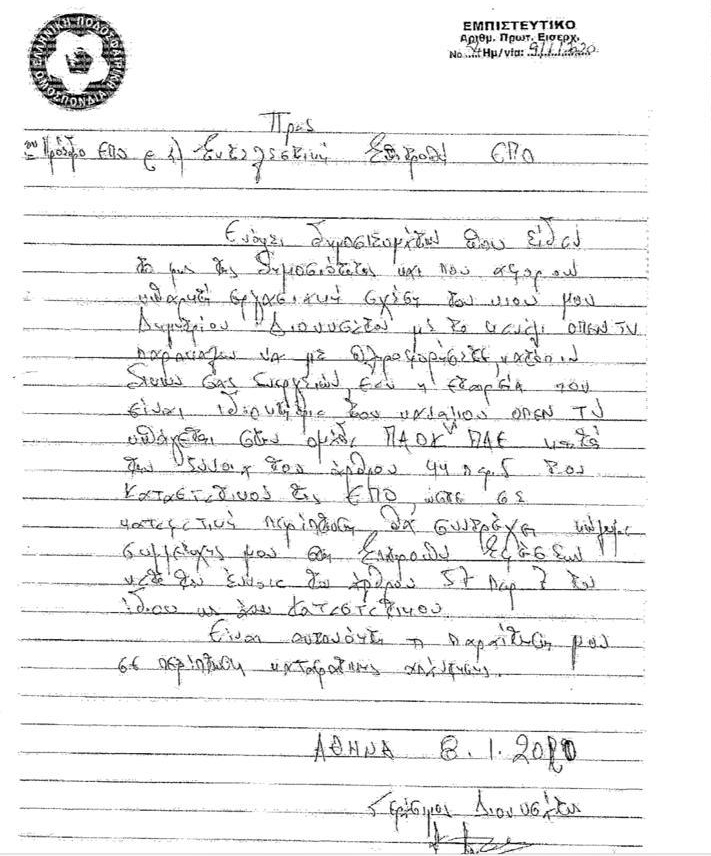 ΕΛΛΗΝΙΚΗ ΠΟΔΟΣΦΑΙΡΙΚΗ ΟΜΟΣΠΟΝΔΙΑ
ΕΜΠΙΣΤΕΥΤΙΚΟ
Αριθμ. Πρωτ. Εισερχ.
Νο Ημ/νία: 9/1/2020
Προς
Πρόεδρο ΕΠΟ Εκτελεστική Επιτροπή ΕΠΟ
Ενόψει δημοσιευμάτων που είδαν
το φως της δημοσιότητας και που αφορούν
υπαρκτή εργασιακή σχέση του υιού μου
Δημητρίου Διονυσάτου με το κανάλι OPEN TV
παρακαλώ να με πληροφορήσετε, κατόπιν
δικών σας ενεργειών, εάν η εταιρεία που
είναι ιδιοκτήτρια του καναλιού OPEN TV
υπάγεται στον όμιλο ΠΑΟΚ ΠΑΕ κατά
την έννοια του άρθρου 44 παρ. 5 του
Καταστατικού της ΕΠΟ, ώστε σε
καταφατική περίπτωση θα συντρέχει κώλυμα
συμμετοχής μου στη Επιτροπή Εφέσεων
κατά την έννοια του άρθρου 57 παρ 7 του
ίδιου ως άνω καταστατικού.
Είναι αυτονόητη η παραίτησή μου
σε περίπτωση καταφατικής απάντησης.
ΑΘΗΝΑ 8.1.2020
Γεράσιμος Διονυσάτος